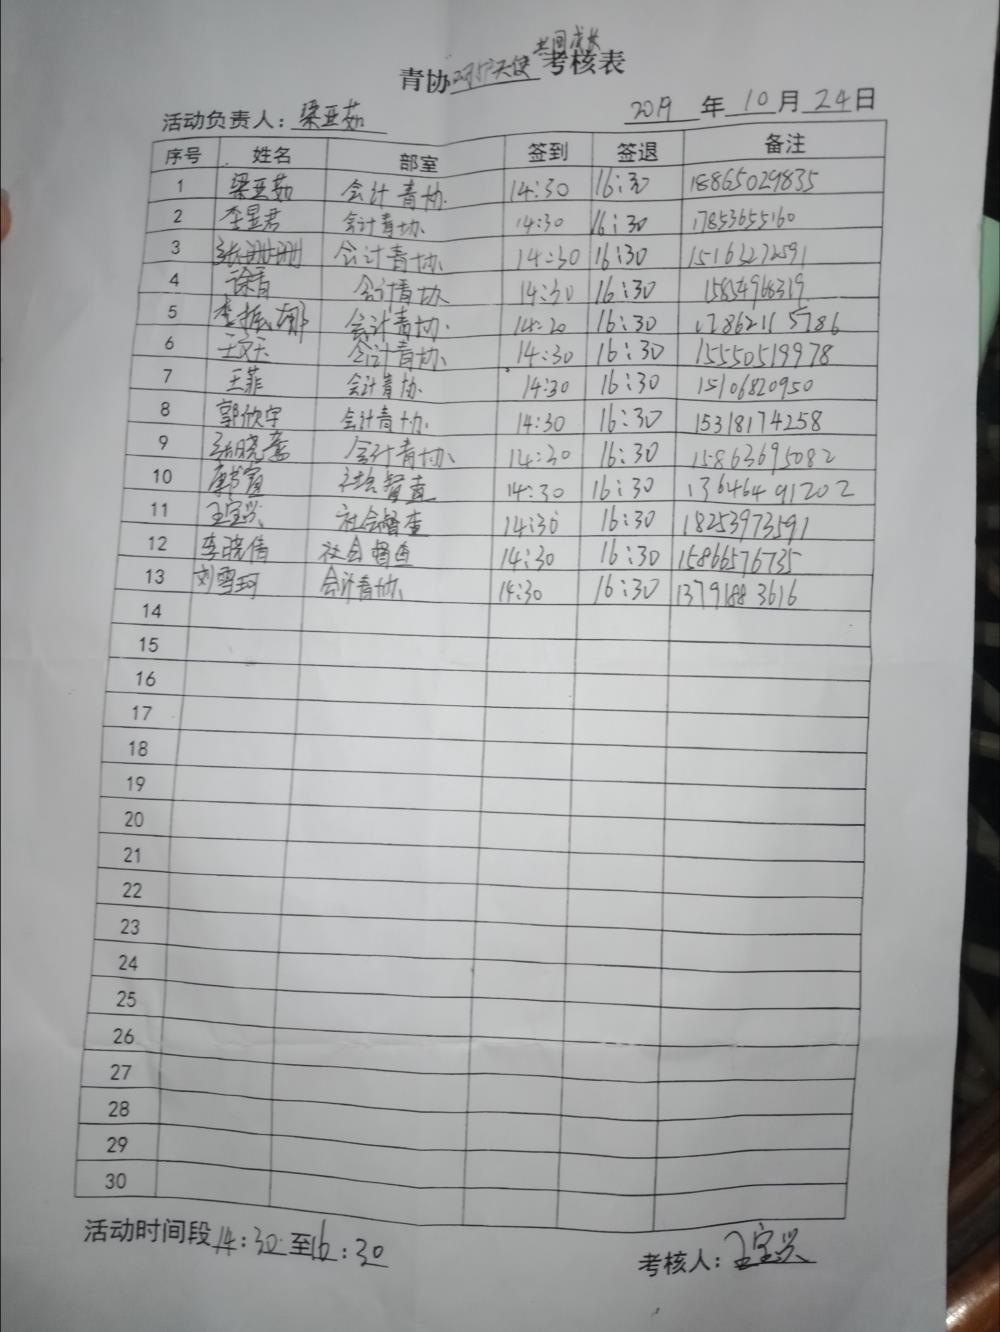 共同成长
青协呵护天使考核表
活动负责人：梁亚茹 2019年10月24日
序号 姓名 部室 签到 签退 备注
1 梁亚茹 会计青协 14:30 16:30 18865029835
2 李昱君 会计青协 14:30 16:30 17853655160
3 张珊珊 会计青协 14:30 16:30 15163272591
4 徐青 会计青协 14:30 16:30 15854968319
5 李振娜 会计青协 14:20 16:30 17862115786
6 王文天 会计青协 14:30 16:30 15550519978
7 王菲 会计青协 14:30 16:30 15106820950
8 郭欣宇 会计青协 14:30 16:30 15318174258
9 张晓 会计青协 14:30 16:30 15863695082
10 社会督查 14:30 16:30 13646491202
11 王宝兴 社会督查 14:30 16:30 18253973591
12 李晓倩 社会督查 14:30 16:30 15866576735
13 刘雪珂 会计青协 14:30 16:30 13791883616
14
15
16
17
18
19
20
21
22
23
24
25
26
27
28
29
30
活动时间段14:30至16:30 考核人：王宝兴